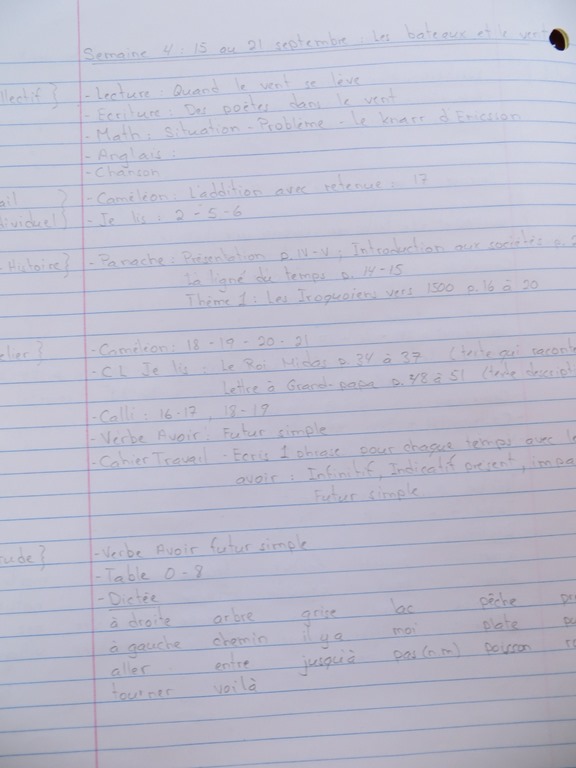 Semaine 4 : 15 au 21 septembre : Les bateaux et le vent
llectif } - Lecture : Quand le vent se lève
- Ecriture : Des poètes dans le vent
- Math : Situation - Problème - le knarr d'Ericsson
- Anglais :
- Chanson
ail } - Caméléon : L'addition avec retenue : 17
dividuel } - Je lis : 2 - 5 - 6
- Histoire } - Panache : Présentation p. IV-V ; Introduction aux sociétés p. 2
La ligne du temps p. 14-15
Thème 1 : Les Iroquoiens vers 1500 p. 16 à 20
elier } - Caméléon : 18 - 19 - 20 - 21
- C L Je lis : Le Roi Midas p. 34 à 37 (texte qui raconte
Lettre à Grand-papa p. 48 à 51 (texte descript
- Calli : 16-17, 18-19
- Verbe Avoir : Futur simple
- Cahier Travail - Ecris 1 phrase pour chaque temps avec le
avoir : Infinitif, Indicatif présent, impa
Futur simple
tude } - Verbe Avoir futur simple
- Table 0-8
- Dictée
à droite arbre grise lac pêche
à gauche chemin il y a moi plate
aller entre jusqu'à pas (n.m) poisson
tourner voilà